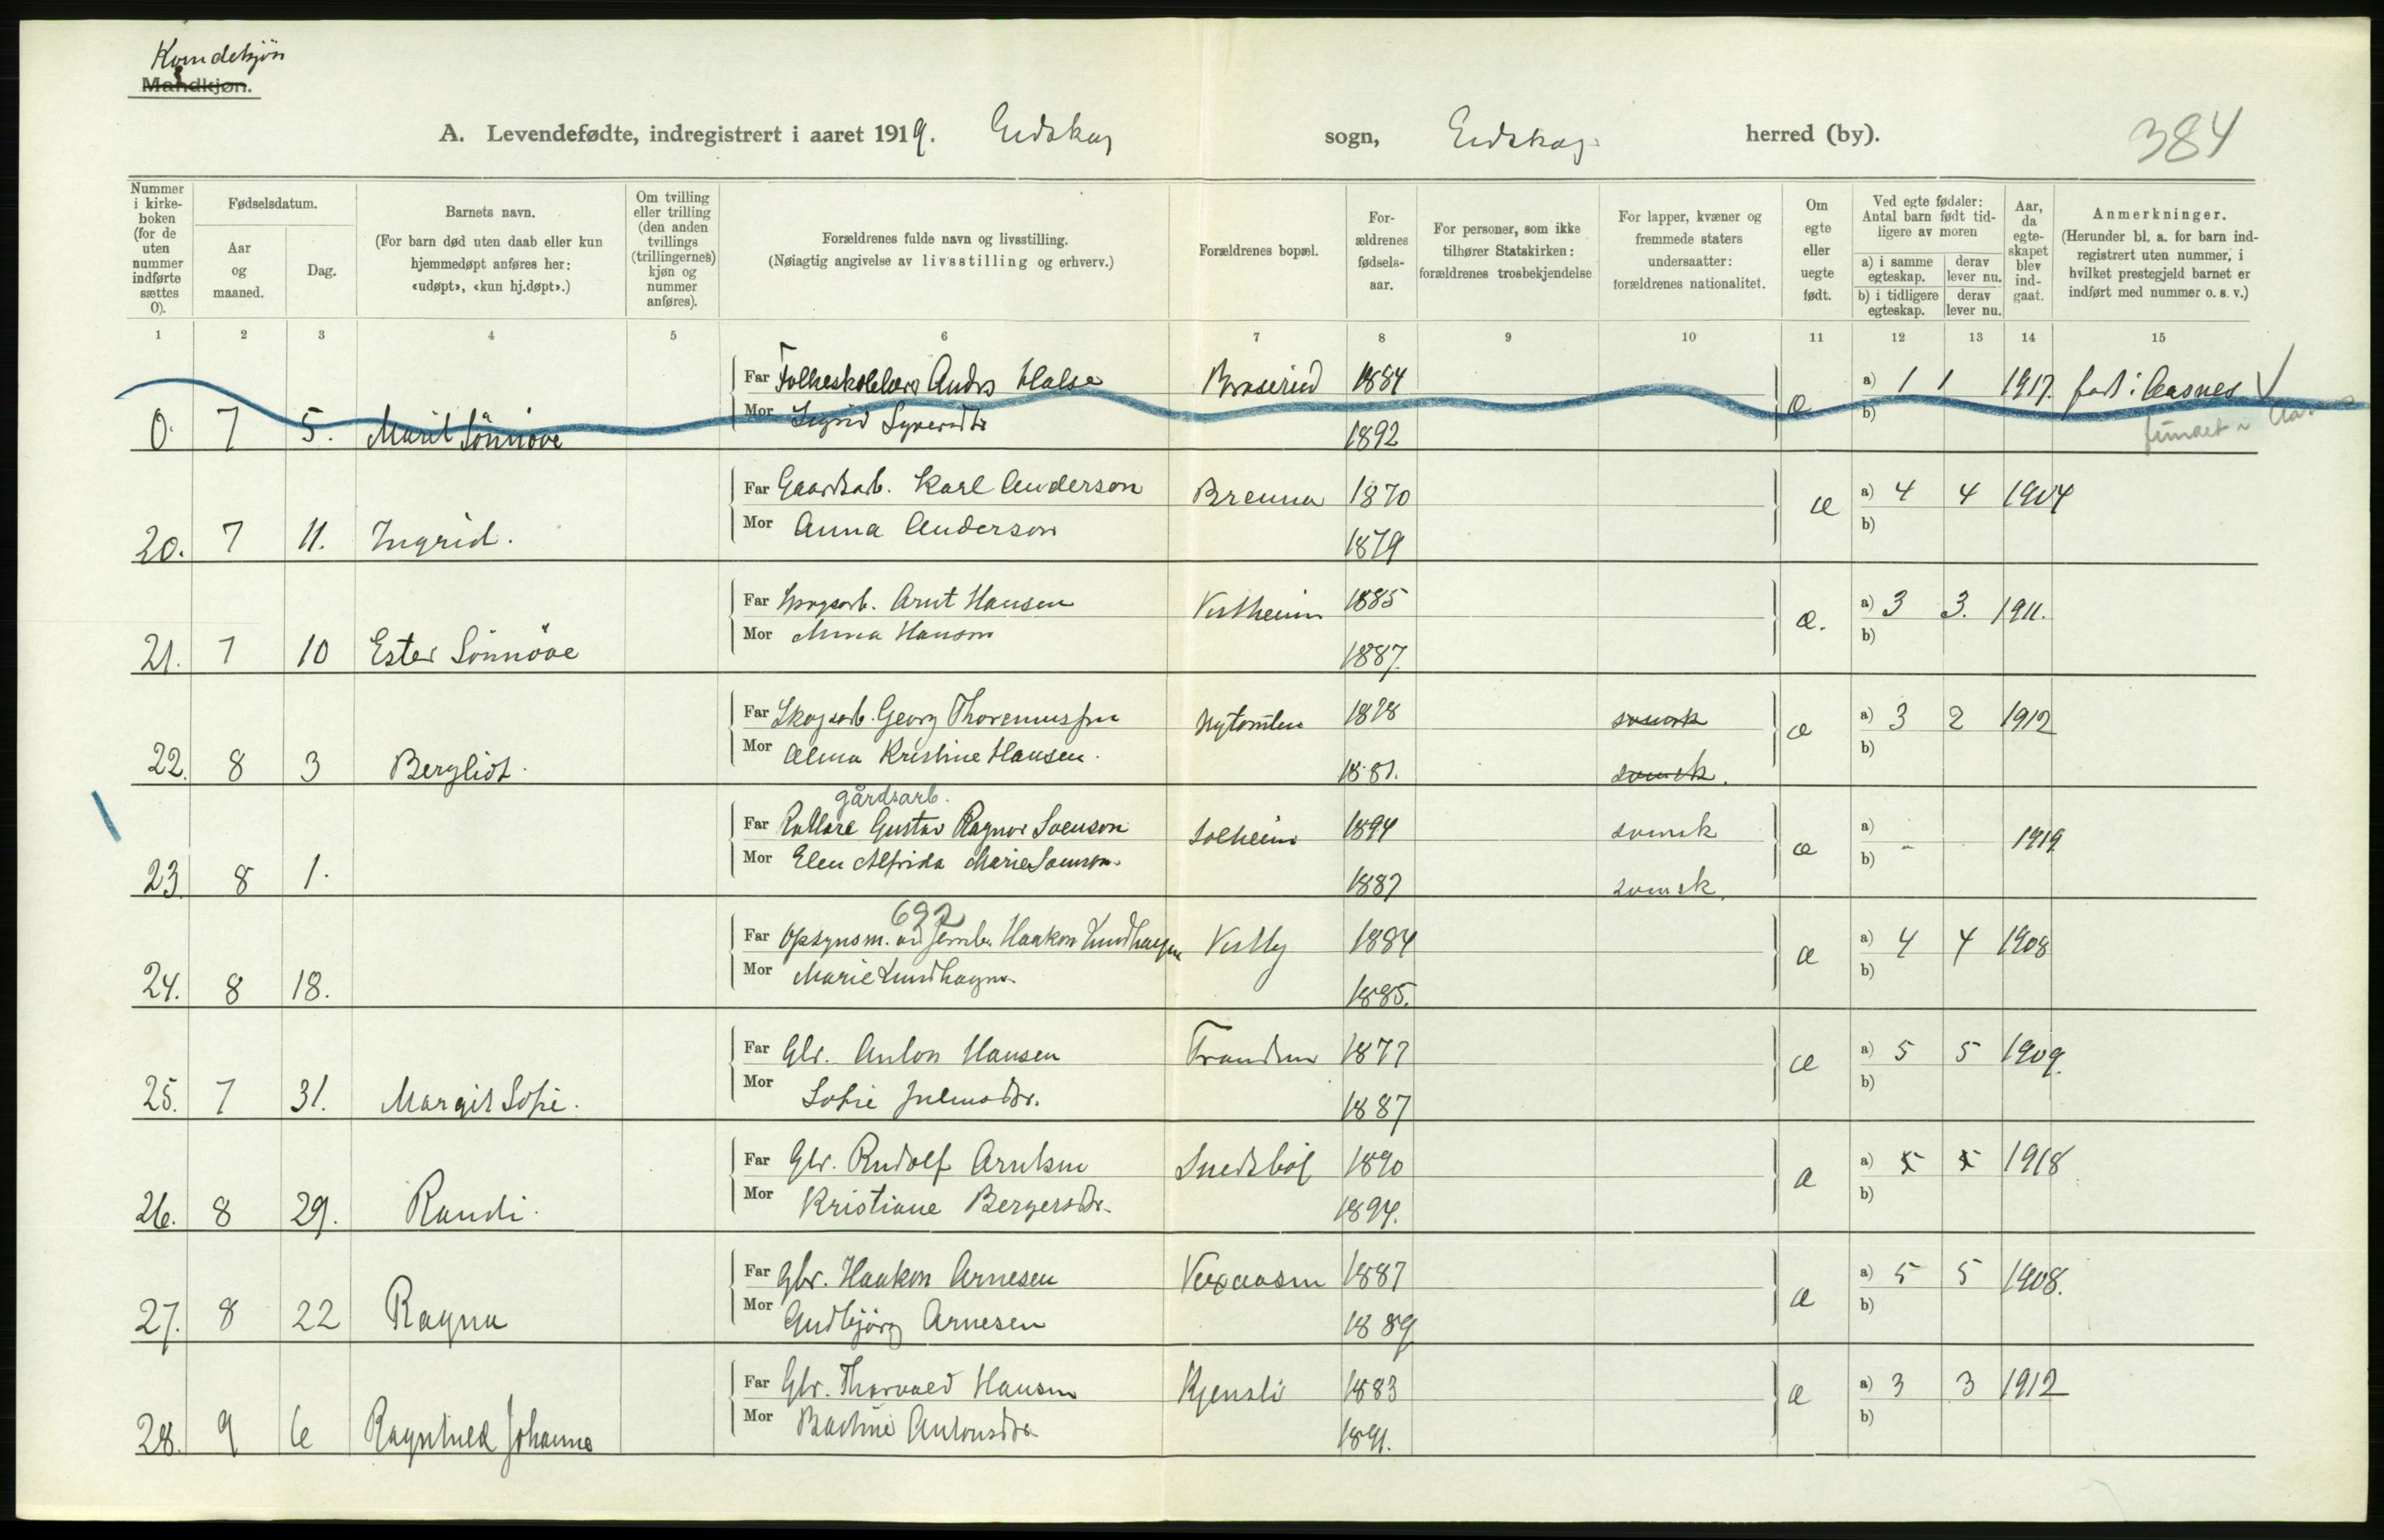 Kvindekjøn
Mandkjøn.
A. Levendefødte, indregistrert i aaret 1919. Eidskog sogn, Eidskog herred (by). 384
Nummer i kirke-boken (for de uten nummer indførte sættes 0).
Fødselsdatum.
Aar og maaned.
Dag.
Barnets navn.
(For barn død uten daab eller kun hjemmedøpt anføres her: «udøpt», «kun hj.døpt».)
Om tvilling eller trilling (den anden tvillings (trillingernes) kjøn og nummer anføres).
Forældrenes fulde navn og livsstilling.
(Nøiagtig angivelse av livsstilling og erhverv.)
Forældrenes bopæl.
For-ældrenes fødsels-aar.
For personer, som ikke tilhører Statskirken: forældrenes trosbekjendelse
For lapper, kvæner og fremmede staters undersaatter: forældrenes nationalitet.
Om egte eller uegte født.
Ved egte fødsler: Antal barn født tid-ligere av moren
a) i samme egteskap.
derav lever nu.
b) i tidligere egteskap.
derav lever nu.
Aar, da egte-skapet blev ind-gaat.
Anmerkninger.
(Herunder bl. a. for barn ind-registrert uten nummer, i hvilket prestegjeld barnet er indført med nummer o. s. v.)
1 2 3 4 5 6 7 8 9 10 11 12 13 14 15
Far Folkeskolelærer Anders Halse 1884 a) 1 1 1917. født i Aasnes
0. 7 5. Marit Sönnöve Mor Sigrid 1892 æ b)
Far Gaardsarb. Karl Anderson Brenna 1870 æ a) 4 4 1904
20. 7 11. Ingrid. Mor Anna Anderson 1879 b)
Far Skogsarb. Arnt Hansen Vestheim 1885 æ. a) 3 3. 1911.
21. 7 10 Ester Sönnöve Mor Anna Hansen 1887. b)
Far Skogsarb. Georg svensk æ a) 3 2 1912
22. 8 3 Bergliot. Mor Alma Kristine Hansen. 1881. svensk. b)
gårdsarb.
Far Rallare Gustav Ragnar Svenson Solheim 1894 svensk æ a) 1919.
23 8 1. Mor Elen Alfrida Marie Svenson. 1887 svensk. b) -
692
Far Opsynsm. ved Jernb. Haakon Lundhagen Vestby 1884 æ a) 4 4 1908
24. 8 18. Mor Marie Lundhagen. 1885. b)
Far Gbr. Anton Hansen 1877 æ a) 5 5 1909.
25. 7 31. Margit Sofie. Mor Sofie Juliusdtr. 1887 b)
Far Gbr. Rudolf Arntsen 1890 æ a) 1918
26. 8 29. Randi. Mor Kristiane Bergersdtr. 1894. b)
Far Gbr. Haakon Arnesen 1887 æ a) 5 5 1908.
27. 8 22 Ragna Mor Gudbjörg Arnesen 1889 b)
Far Gbr. Thorvald Hansen Kjensli 1883 æ a) 3 3 1912
28. 9 6 Ragnhild Johanne Mor Bastine Antonsdtr. 1891. b)